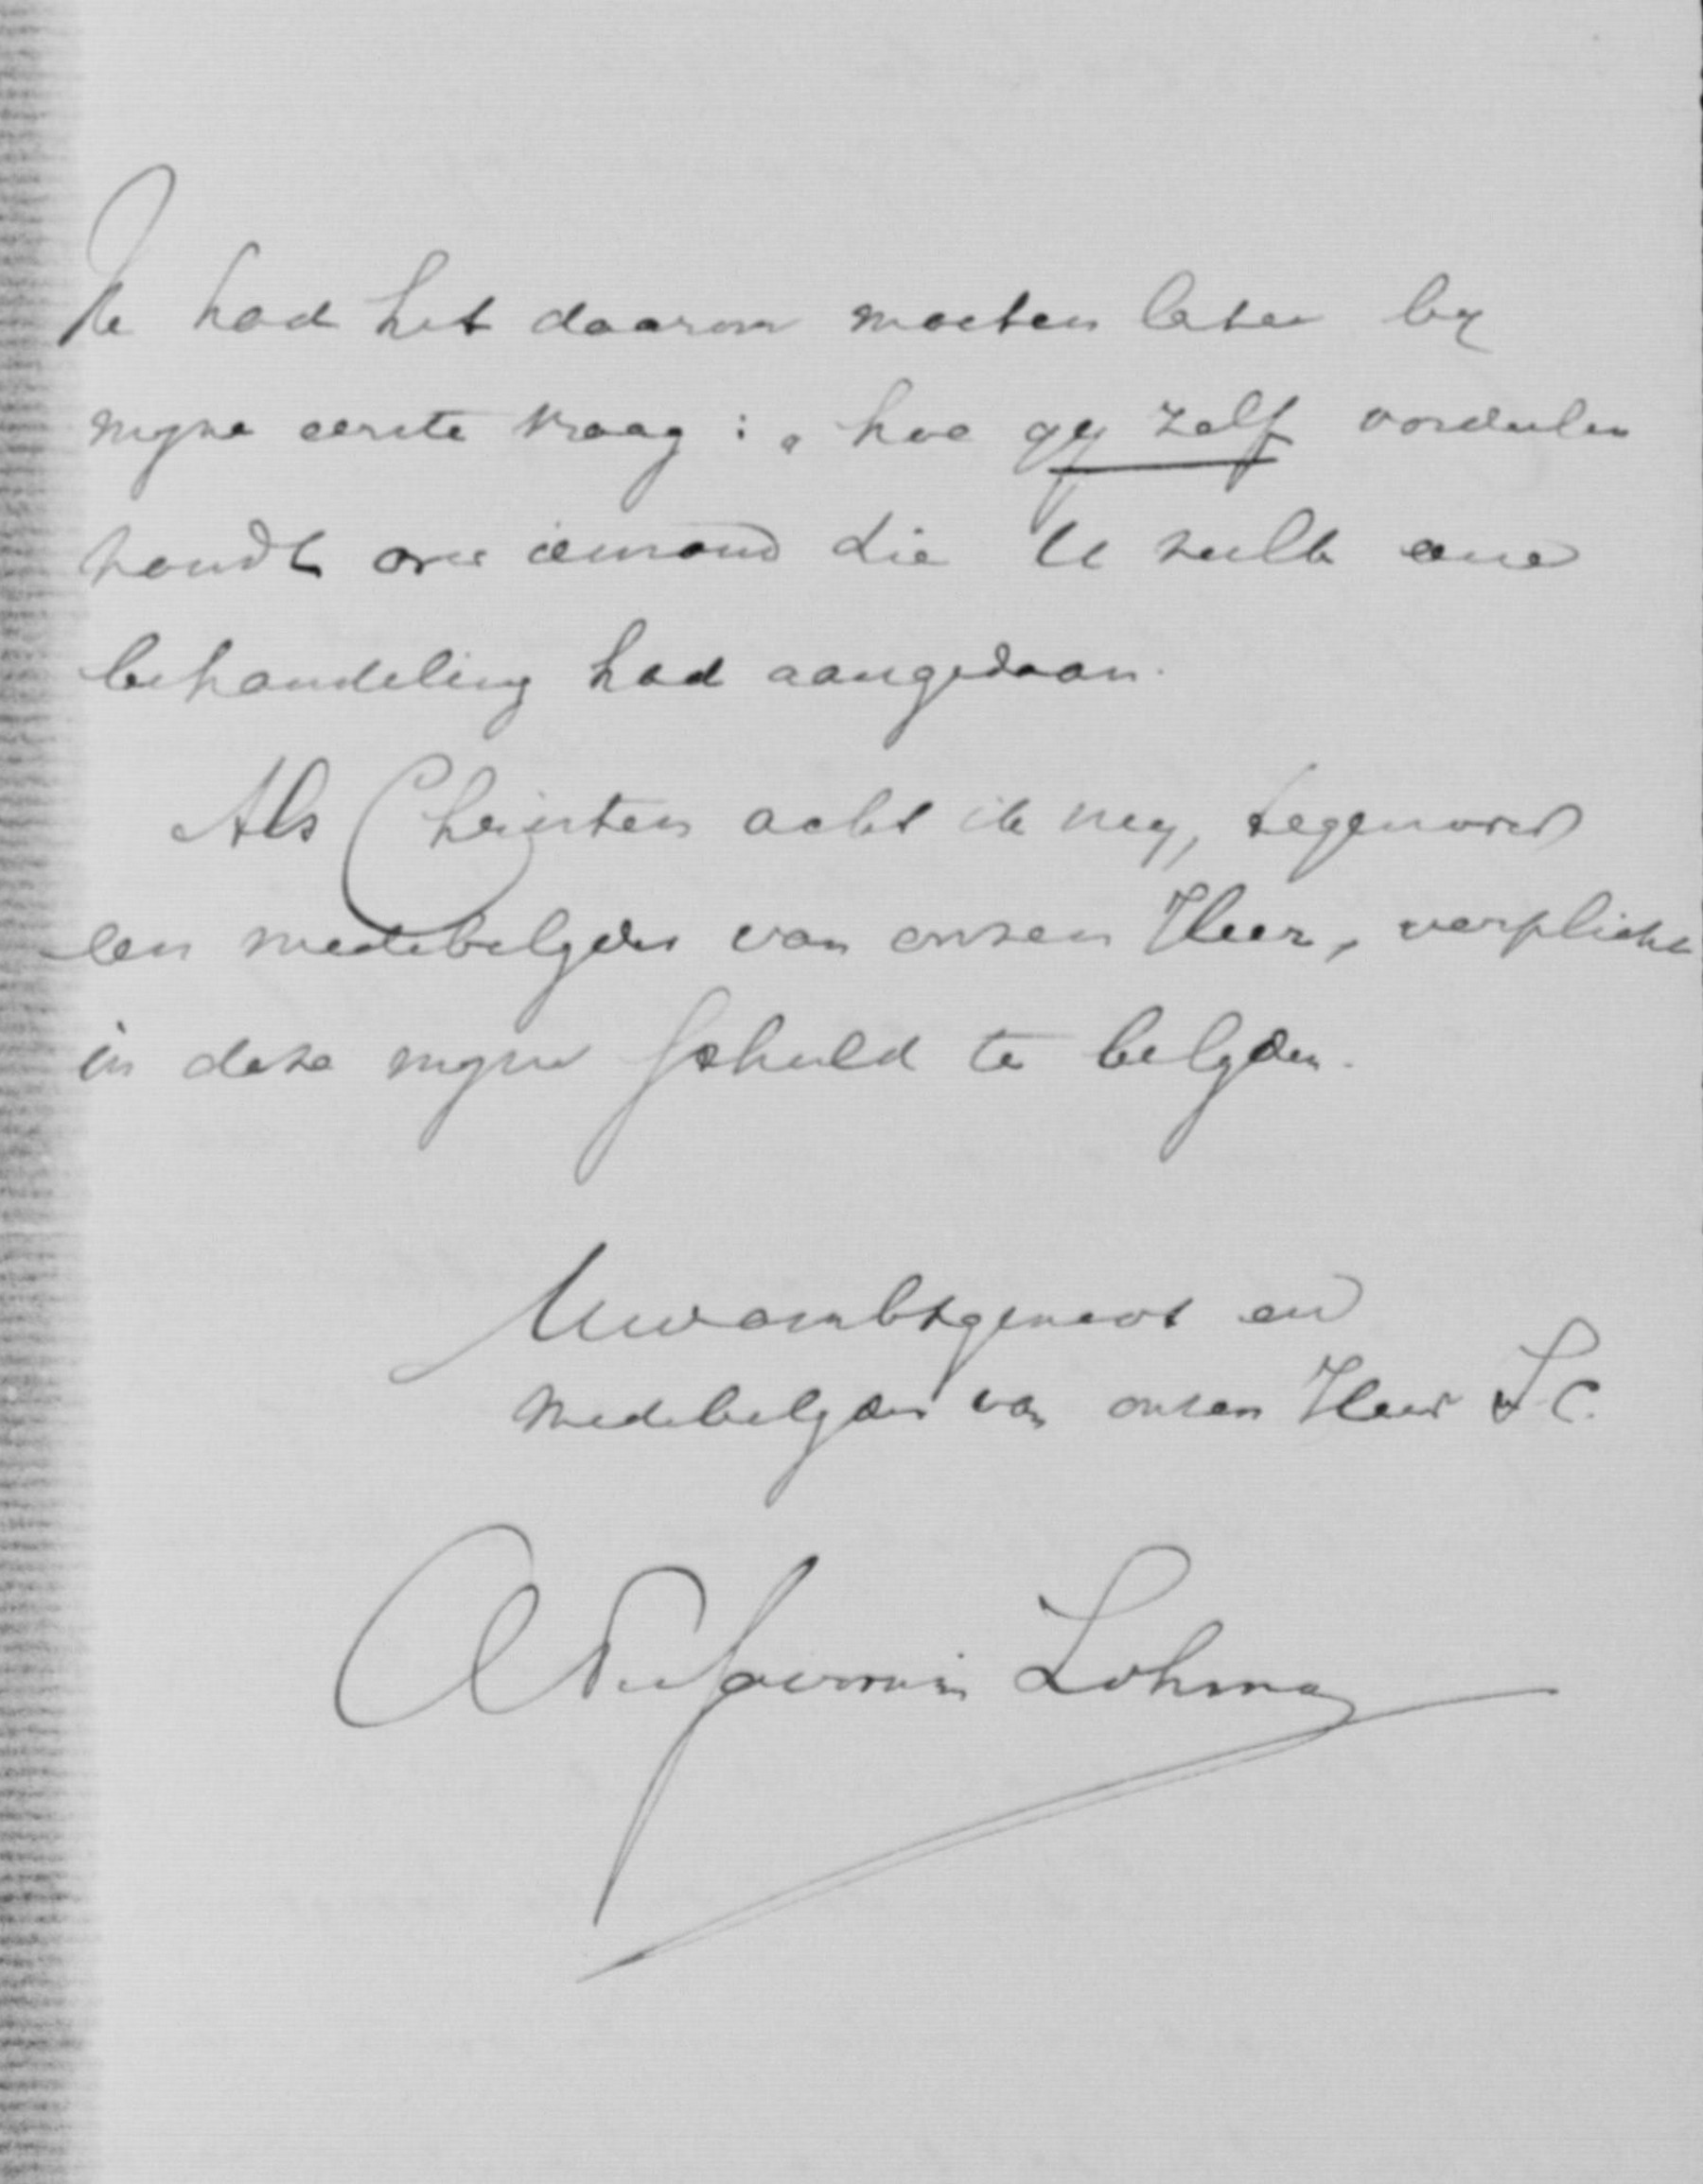 Ik had het daarom moeten laten by
myne eerste vraag: „hoe gy zelf oordeelen
zoudt over iemand die U zulk eene
behandeling had aangedaan.
Als Christen acht ik my, tegenover
een medebelyder van onzen Heer, verplicht
in deze myne schuld te belyden.
Uw ambtgenoot en
medebelyder van onzen Heer J.C.
A F de Savornin Lohman